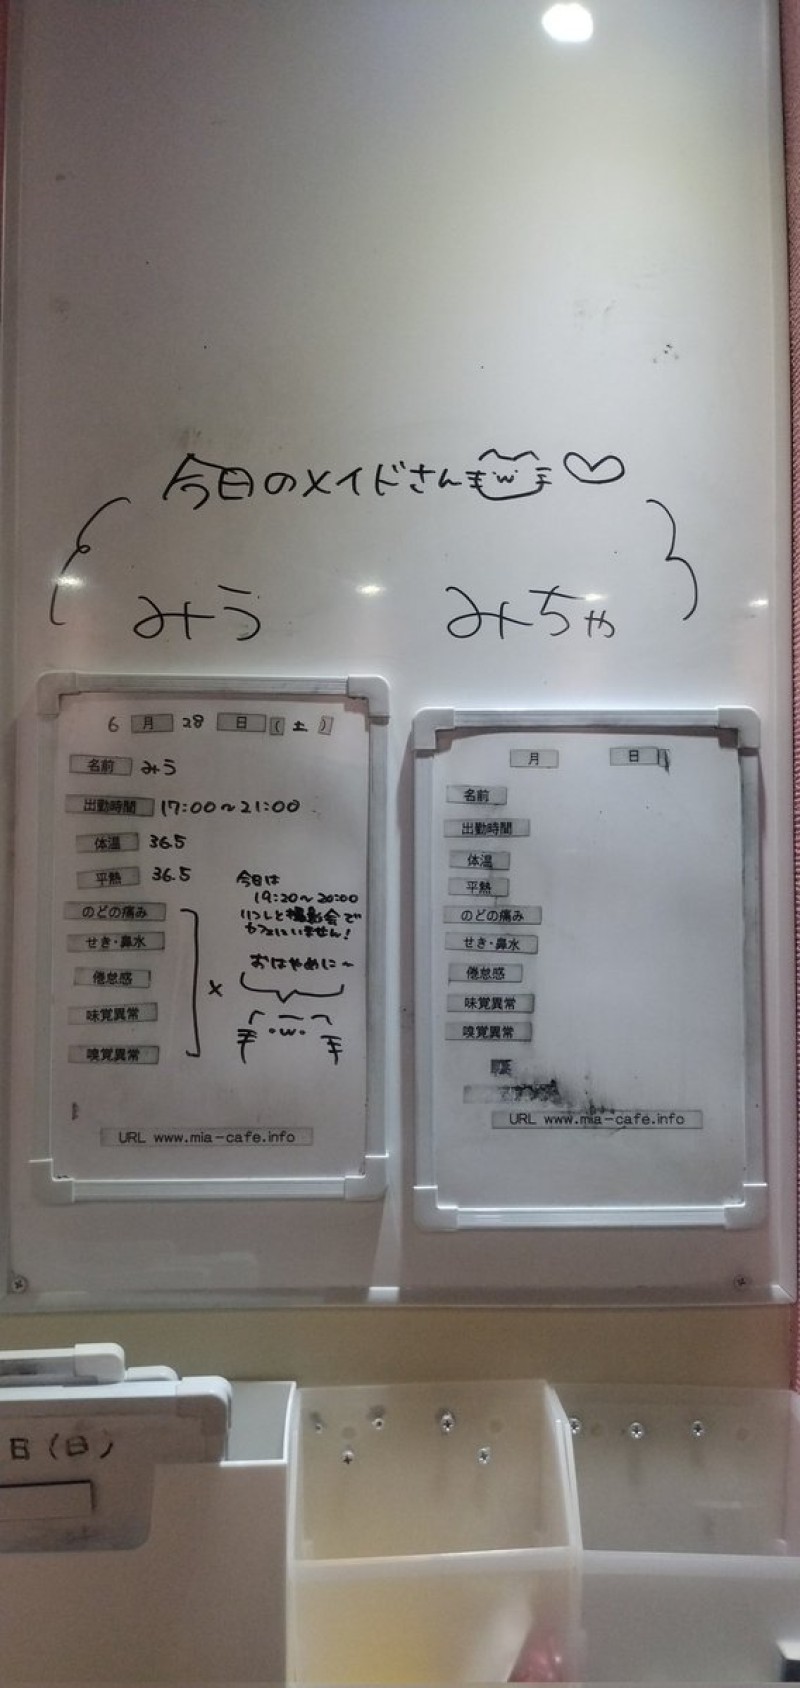 今日のメイドさん
みう
みちゃ
6月28日(土)
名前 みう
出勤時間 17:00〜21:00
体温 36.5
平熱 36.5
のどの痛み
せき・鼻水
倦怠感
味覚異常
嗅覚異常
×
今日は
19:20〜20:00
リフレと撮影会で
カフェにいません!
おはやめに〜
URL www.mia-cafe.info
月 日
名前
出勤時間
体温
平熱
のどの痛み
せき・鼻水
倦怠感
味覚異常
嗅覚異常
URL www.mia-cafe.info
日(日)